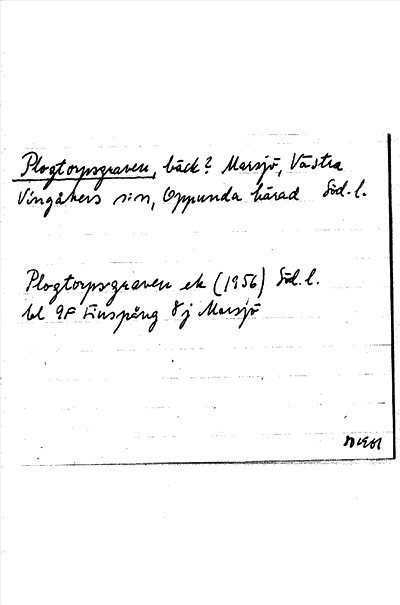 Plogtorpsgraven, bäck? Marsjö, Västra
Vingåkers sn, Oppunda härad Söd.l.
Plogtorpsgraven ek (1956) Söd.l.
bl 9F Finspång 8j Marsjö